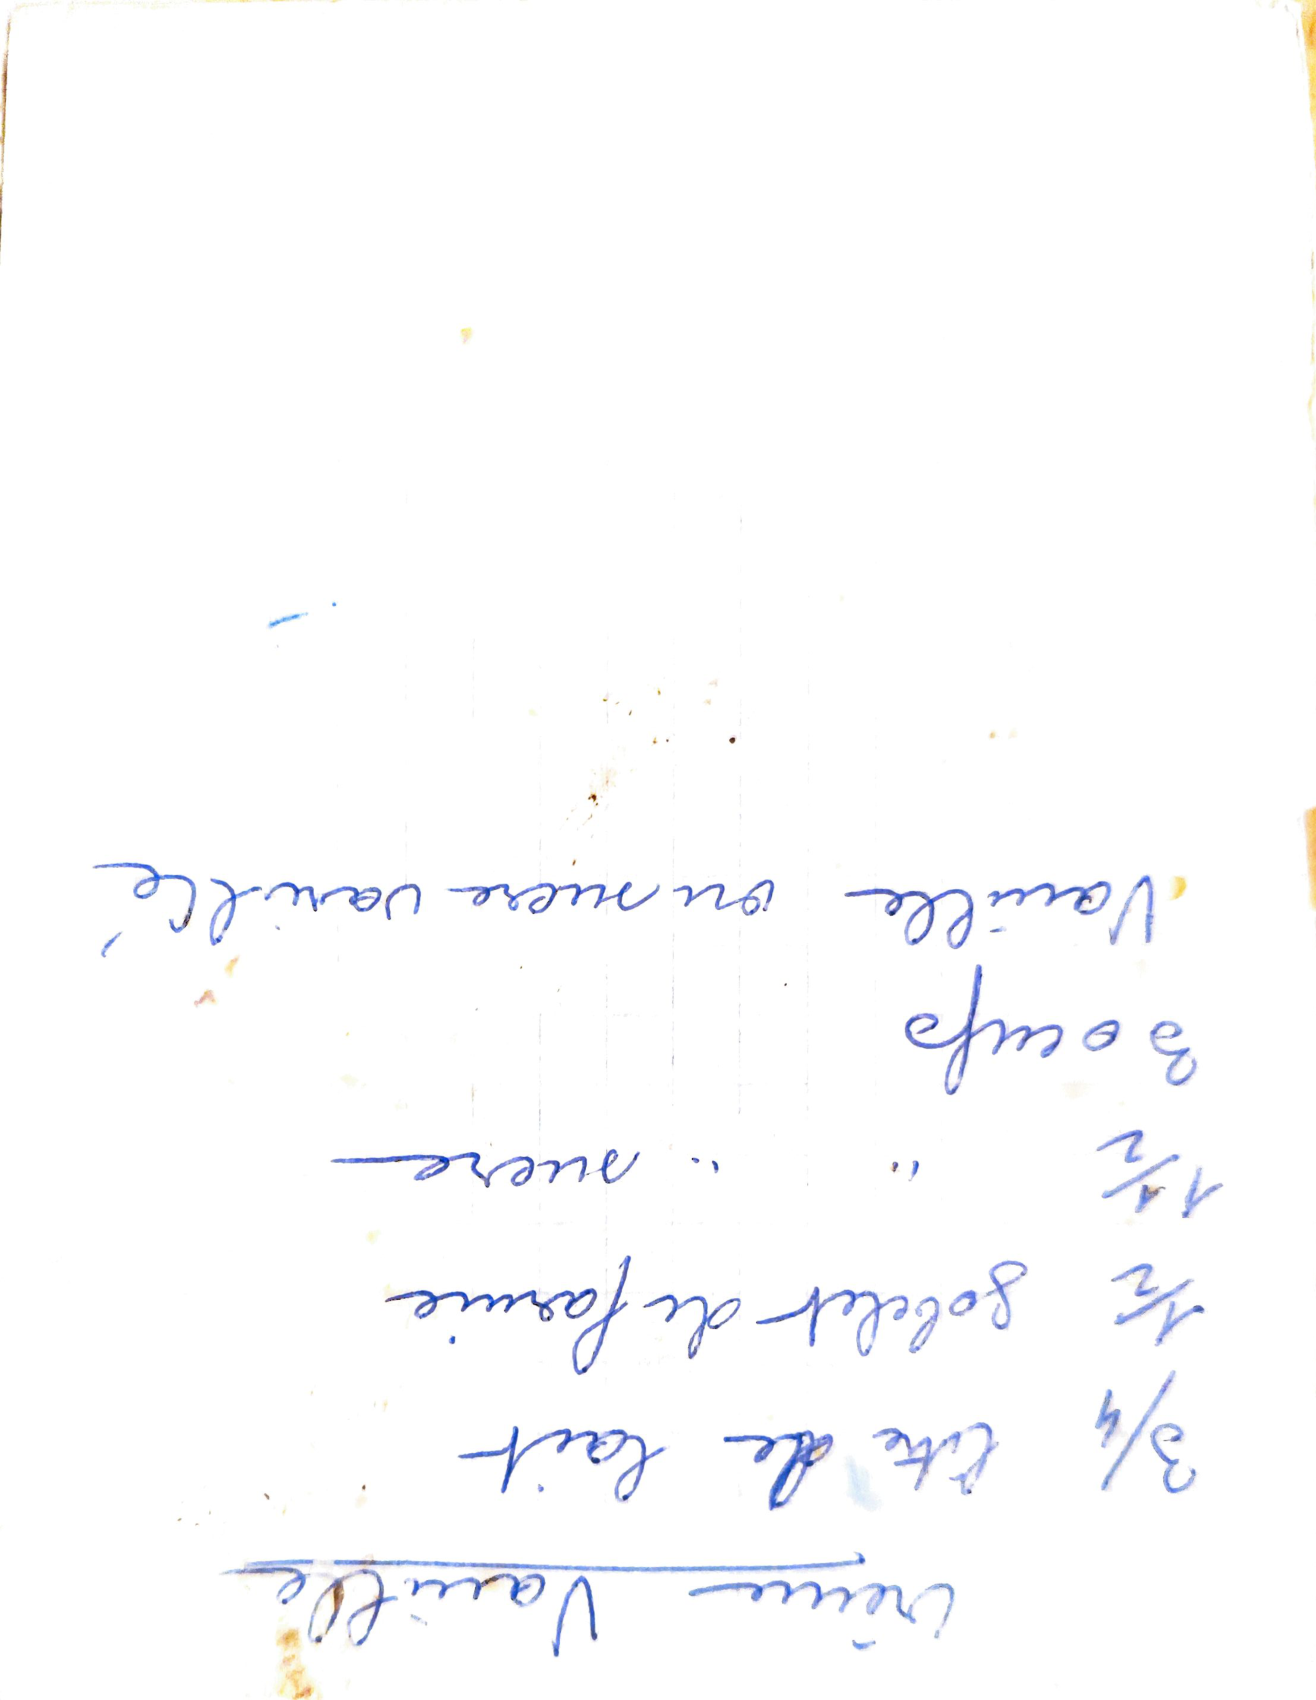 crème Vanille
3/4 litre de lait
1/2 gobelet de farine
1 1/2 " " sucre
3 oeufs
Vanille ou sucre vanillé